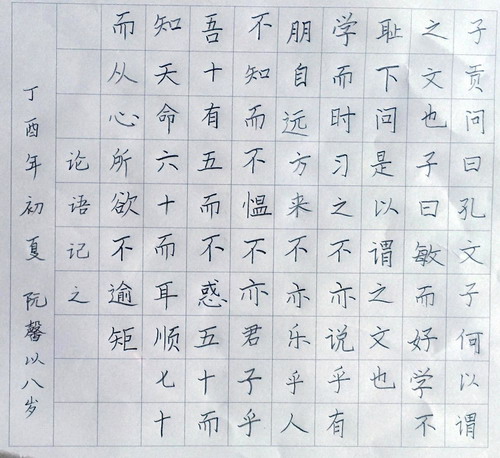 子贡问曰孔文子何以谓
之文也子曰敏而好学不
耻下问是以谓之文也
学而时习之不亦说乎有
朋自远方来不亦乐乎人
不知而不愠不亦君子乎
吾十有五而不惑五十而
知天命六十而耳顺七十
而从心所欲不逾矩
论语记之
丁酉年初夏 阮馨以八岁